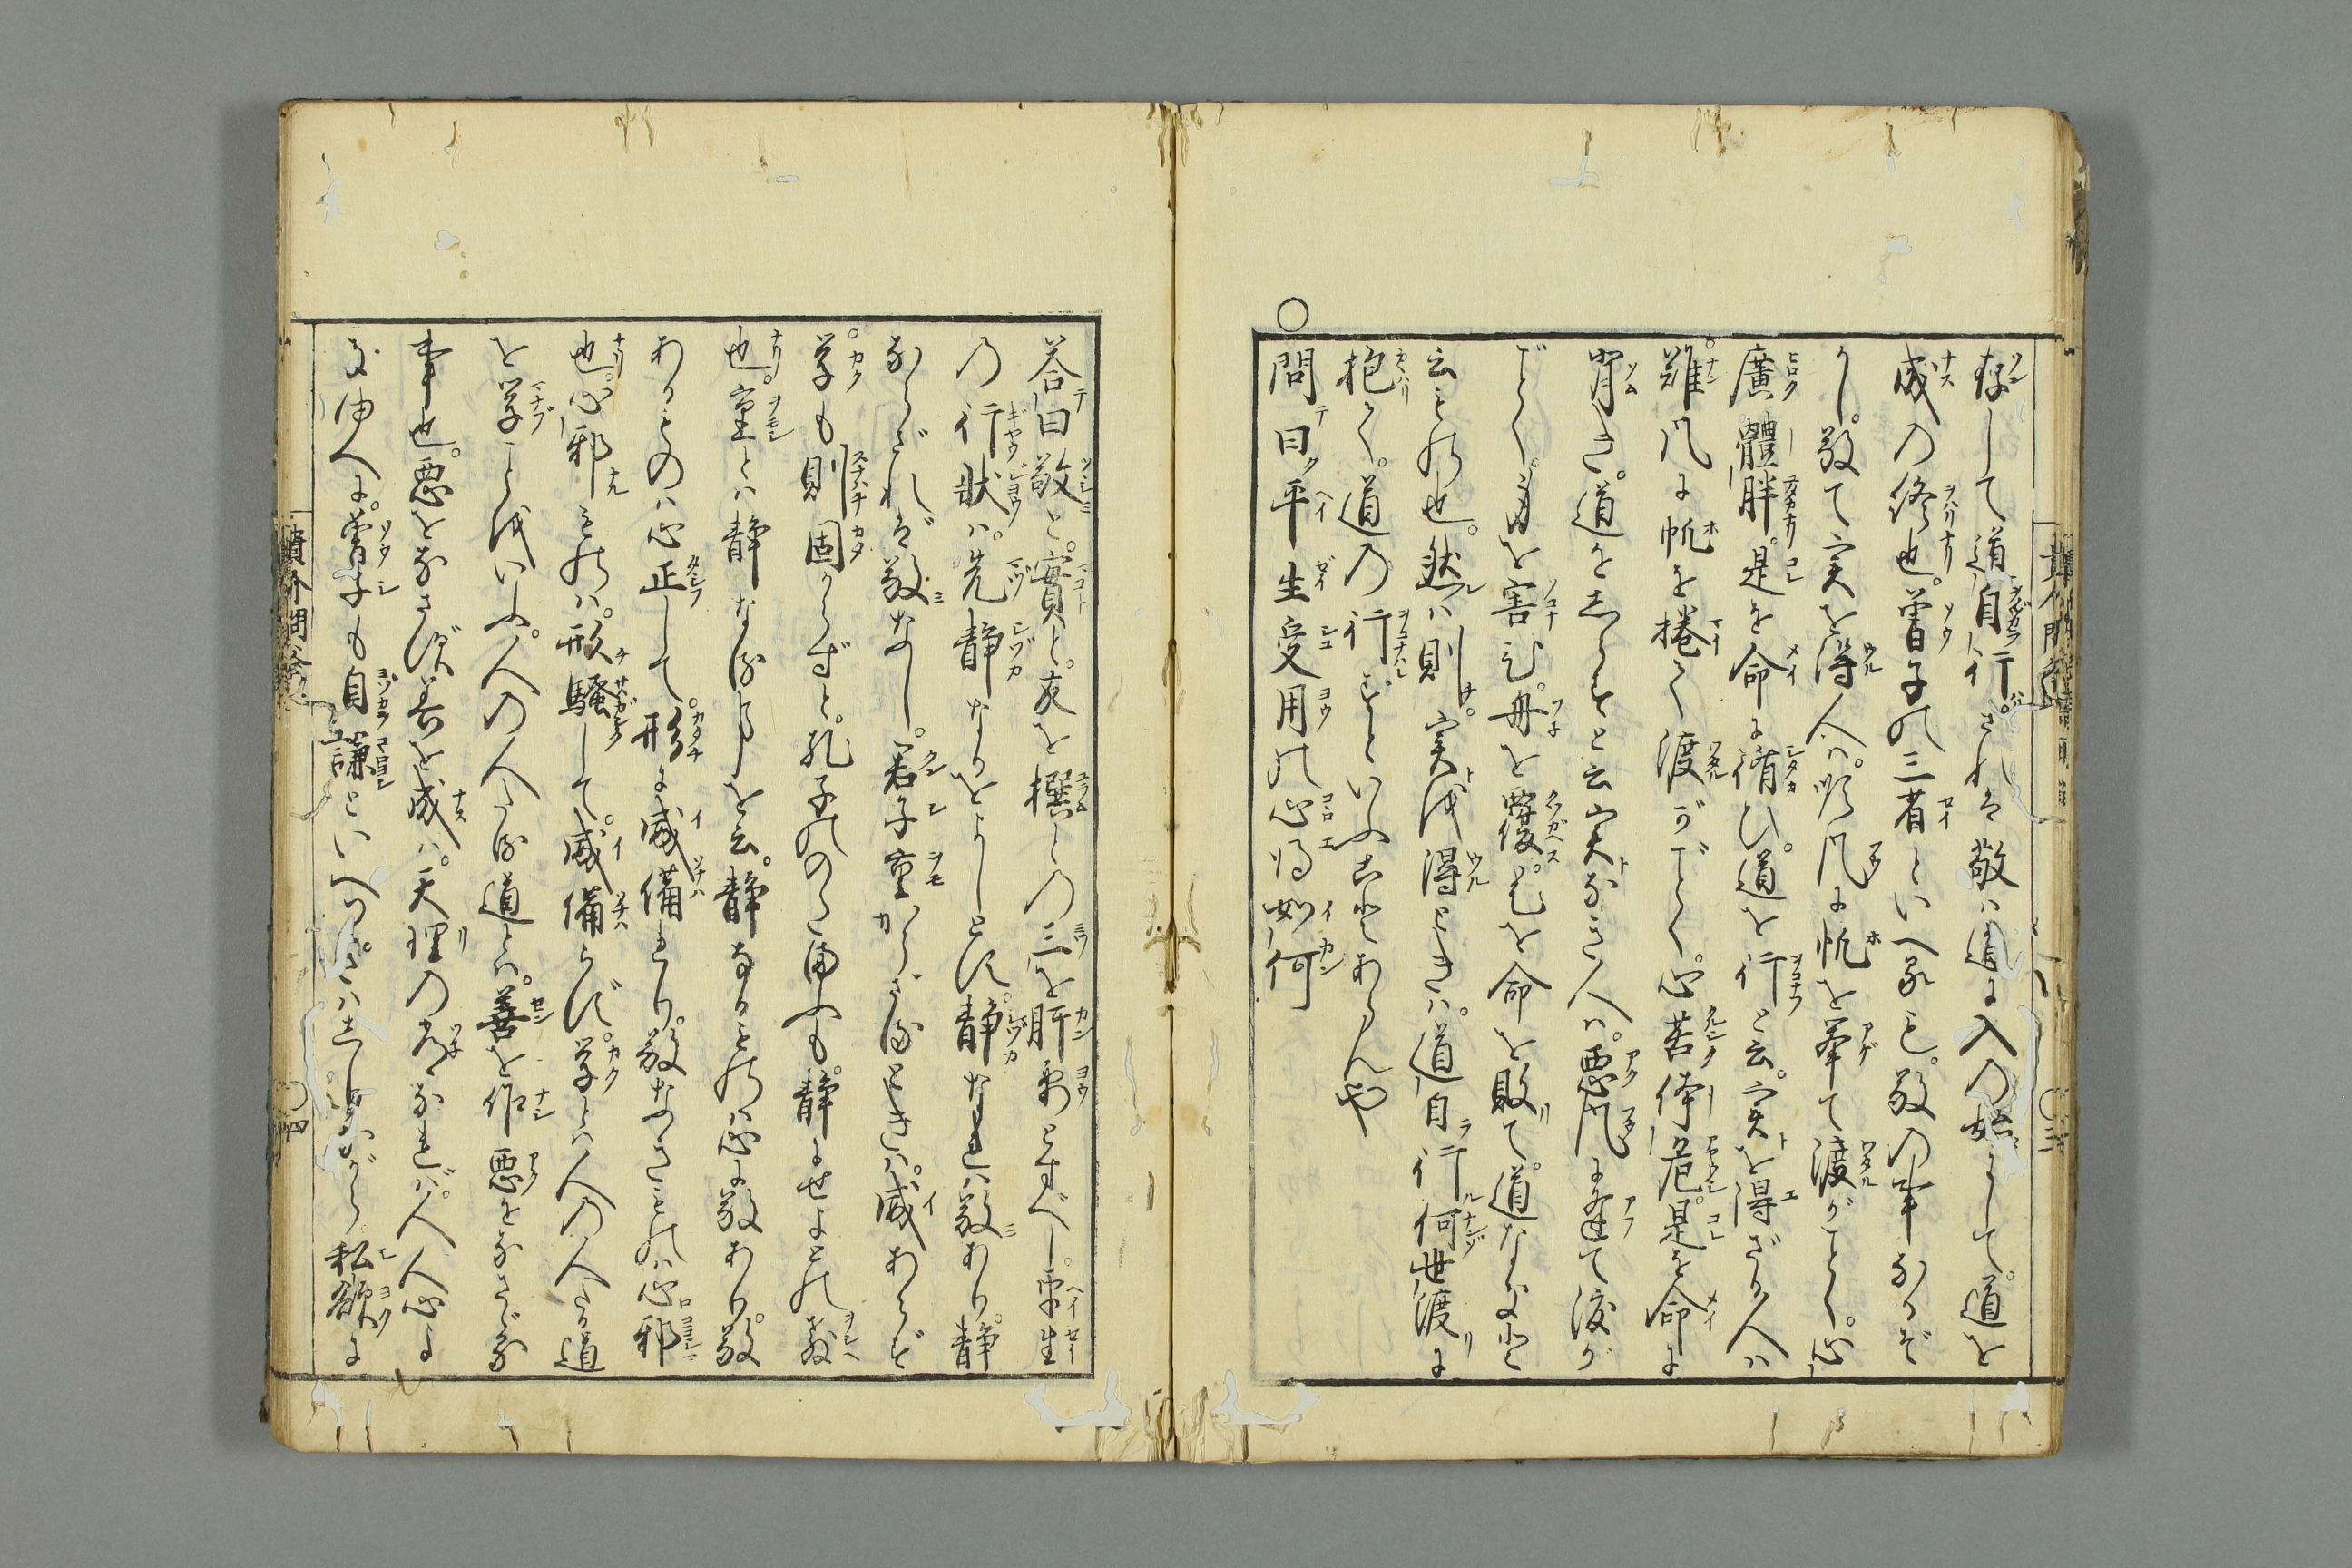 存して道自行る。されは敬ハ道に入の始にして。道を
成の終也。曽子の三省といへるも。敬の事なるぞ
かし。敬て実を得人ハ。順風に帆を挙て渡がごとく。心
廣體胖。是を命に循ひ。道を行と云。実を得ざる人ハ
難風に帆を捲て渡がごとく。心苦体危。是を命に
背き。道をしらずと云。実なき人ハ。悪風に逢て渡が
ごとく。身を害ひ。舟を覆す。是を命を敗て。道なしと
云もの也。然ハ則。実を得ときハ。道自行。何世渡に
抱て。道の行ずといふことあらんや
○
問曰平生受用の心得如何
答曰敬と。實と。友を撰との三を肝要とすべし。平生
の行状ハ。先静なるをよしとす。静なれハ敬あり。静
ならざれば敬なし。君子重からざるときハ。威あらず
学も則固からずと。孔子ののたまふも。静にせよとの教
也。重とハ静なる事を云。静なるものハ心に敬あり。敬
あるものハ心正して。形に威備れり。敬なきものハ心邪
也。心邪ものハ。形騒して。威備らず。学とハ人の人たる道
を学ことをいふ。人の人たる道とハ。善を作悪をなさゞる
事也。悪をなさず善を成ハ。天理の常なれば。人人心に
よ
自謙といへり。
私欲に